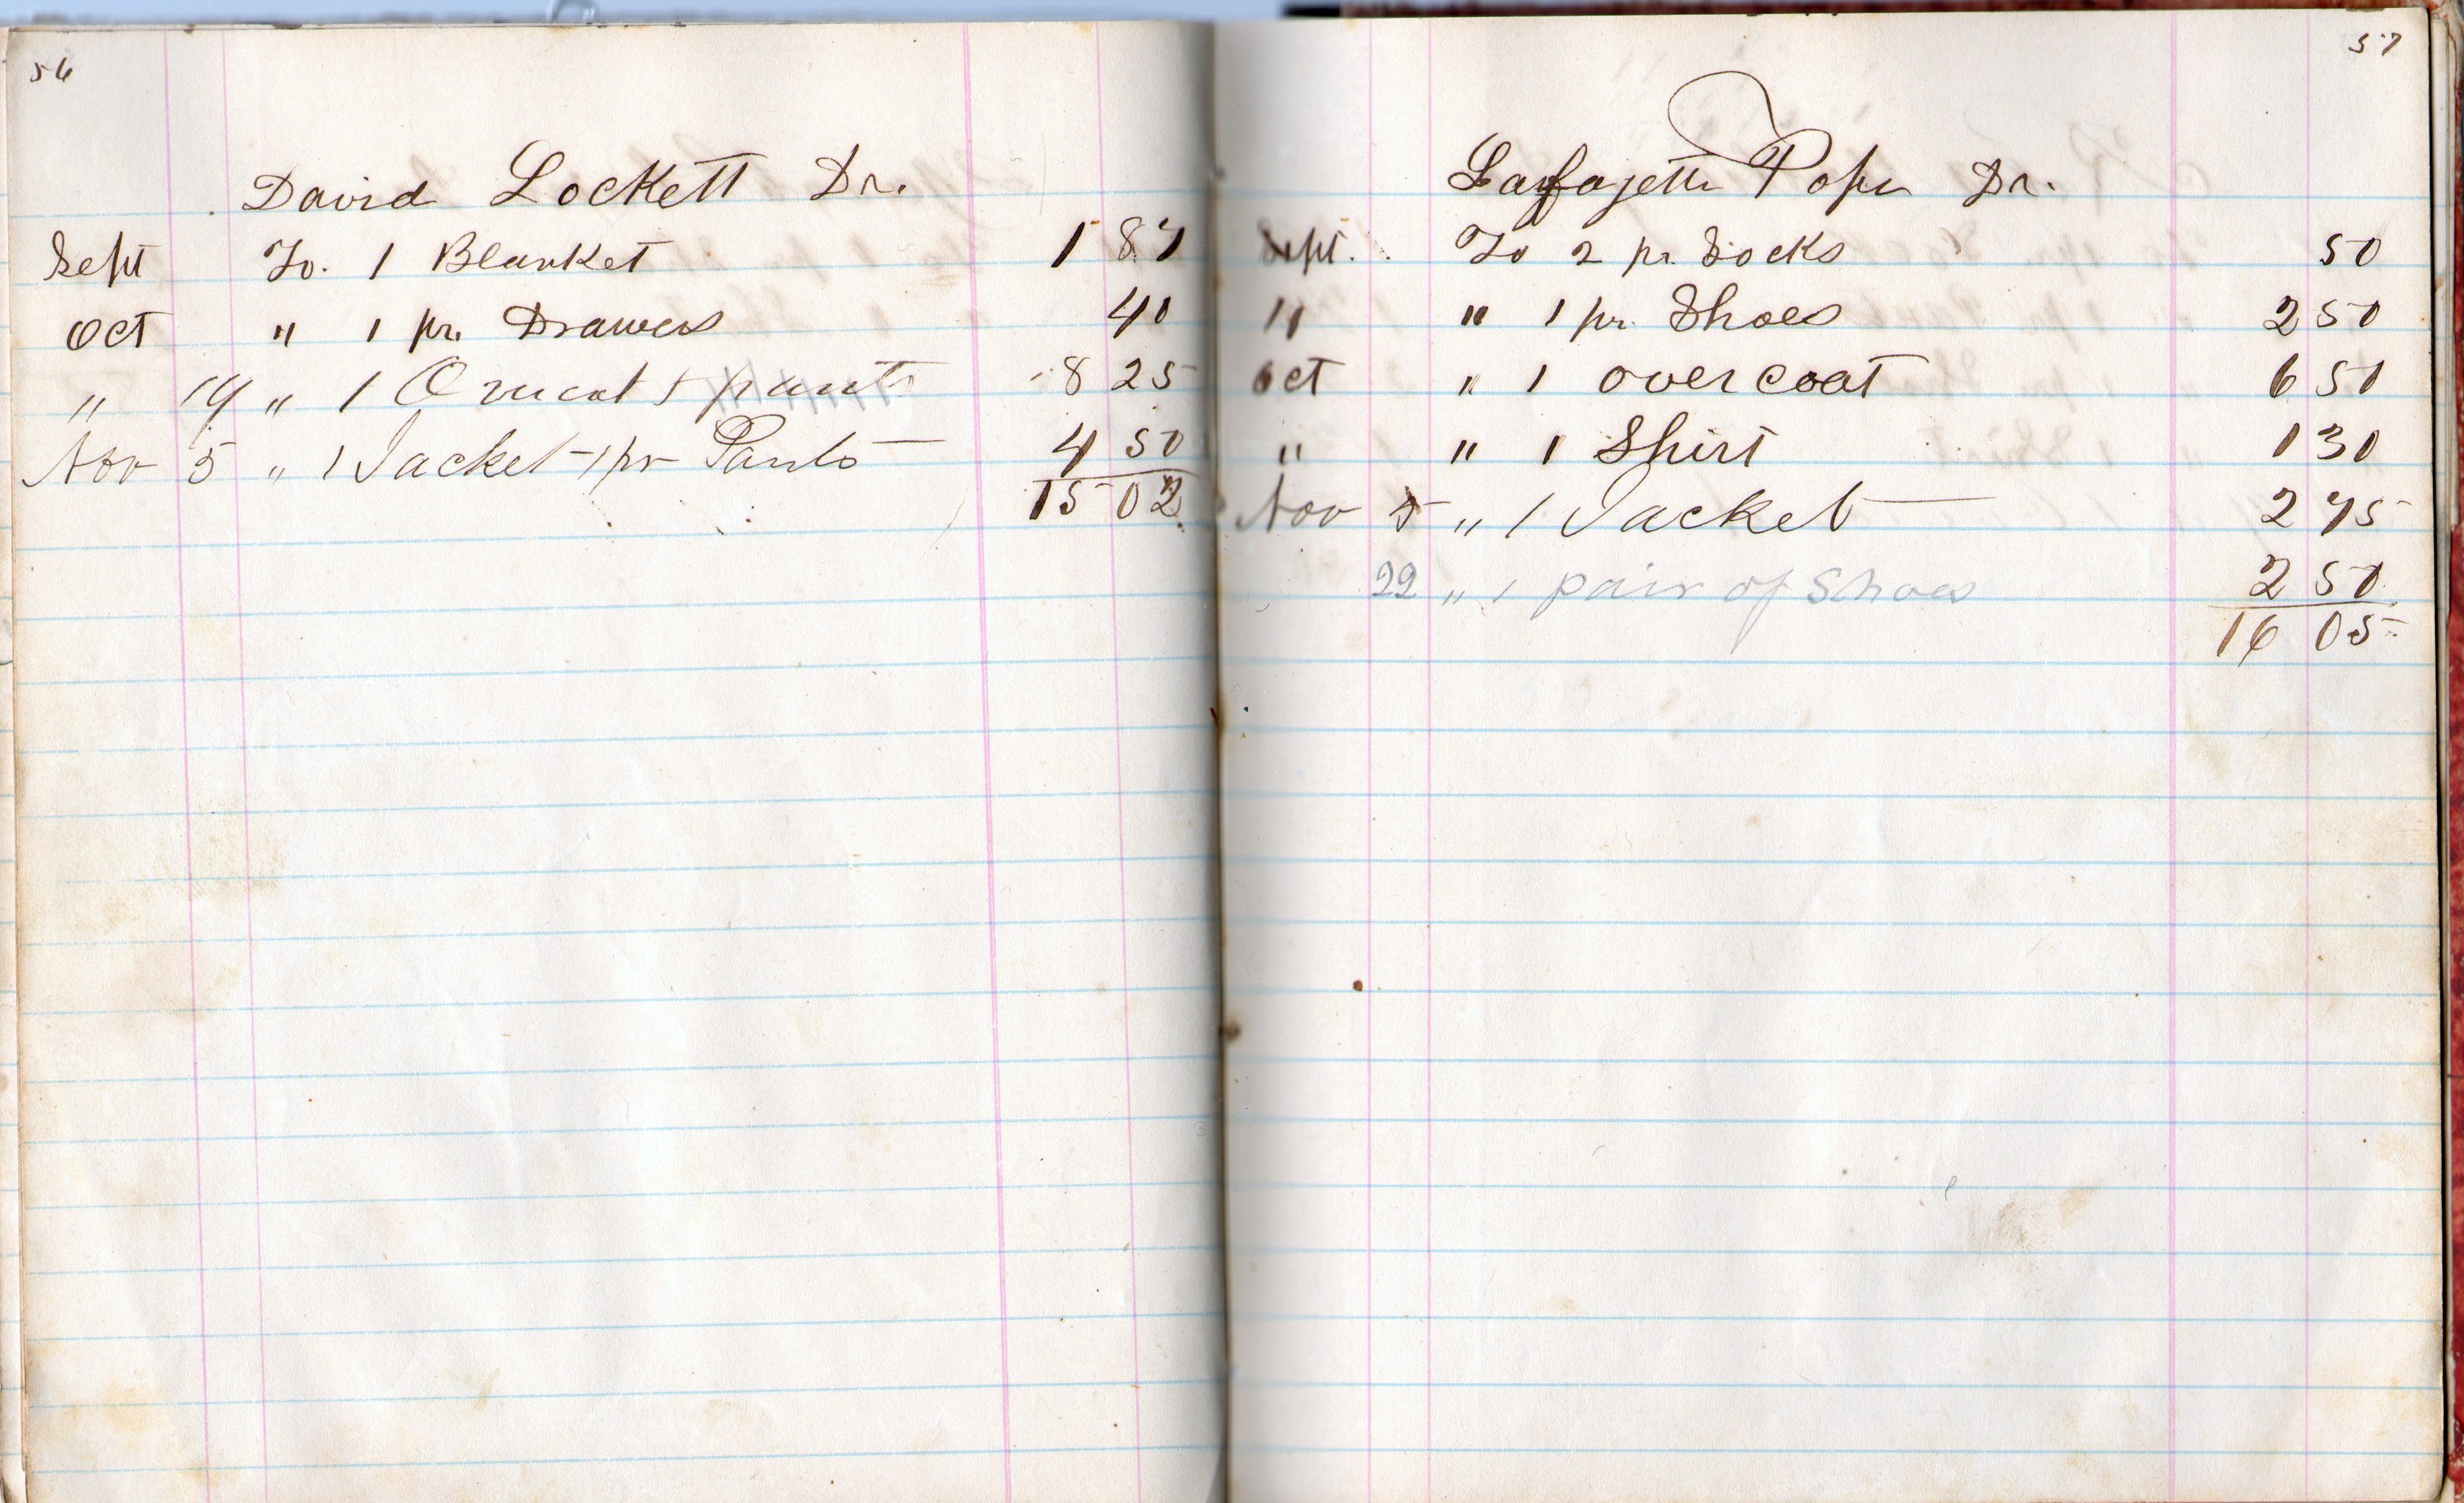 56
David Lockett Dr.
Sept To. 1 Blanket 1 87
Oct " 1 pr. Drawers 40
" 19 " 1 Overcoat & pants 8 25
Nov 5 " 1 Jacket 1 pr Pants 4 50
15 02
57
Lafayette Pope Dr.
Sept. To 2 pr. Socks 50
" " 1 pr. Shoes 2 50
Oct " 1 over coat 6 50
" " 1 Shirt 1 30
Nov 5 " 1 Jacket 2 75
22 " 1 pair of Shoes 2 50
16 05